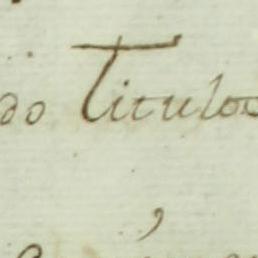 do Titulos
,